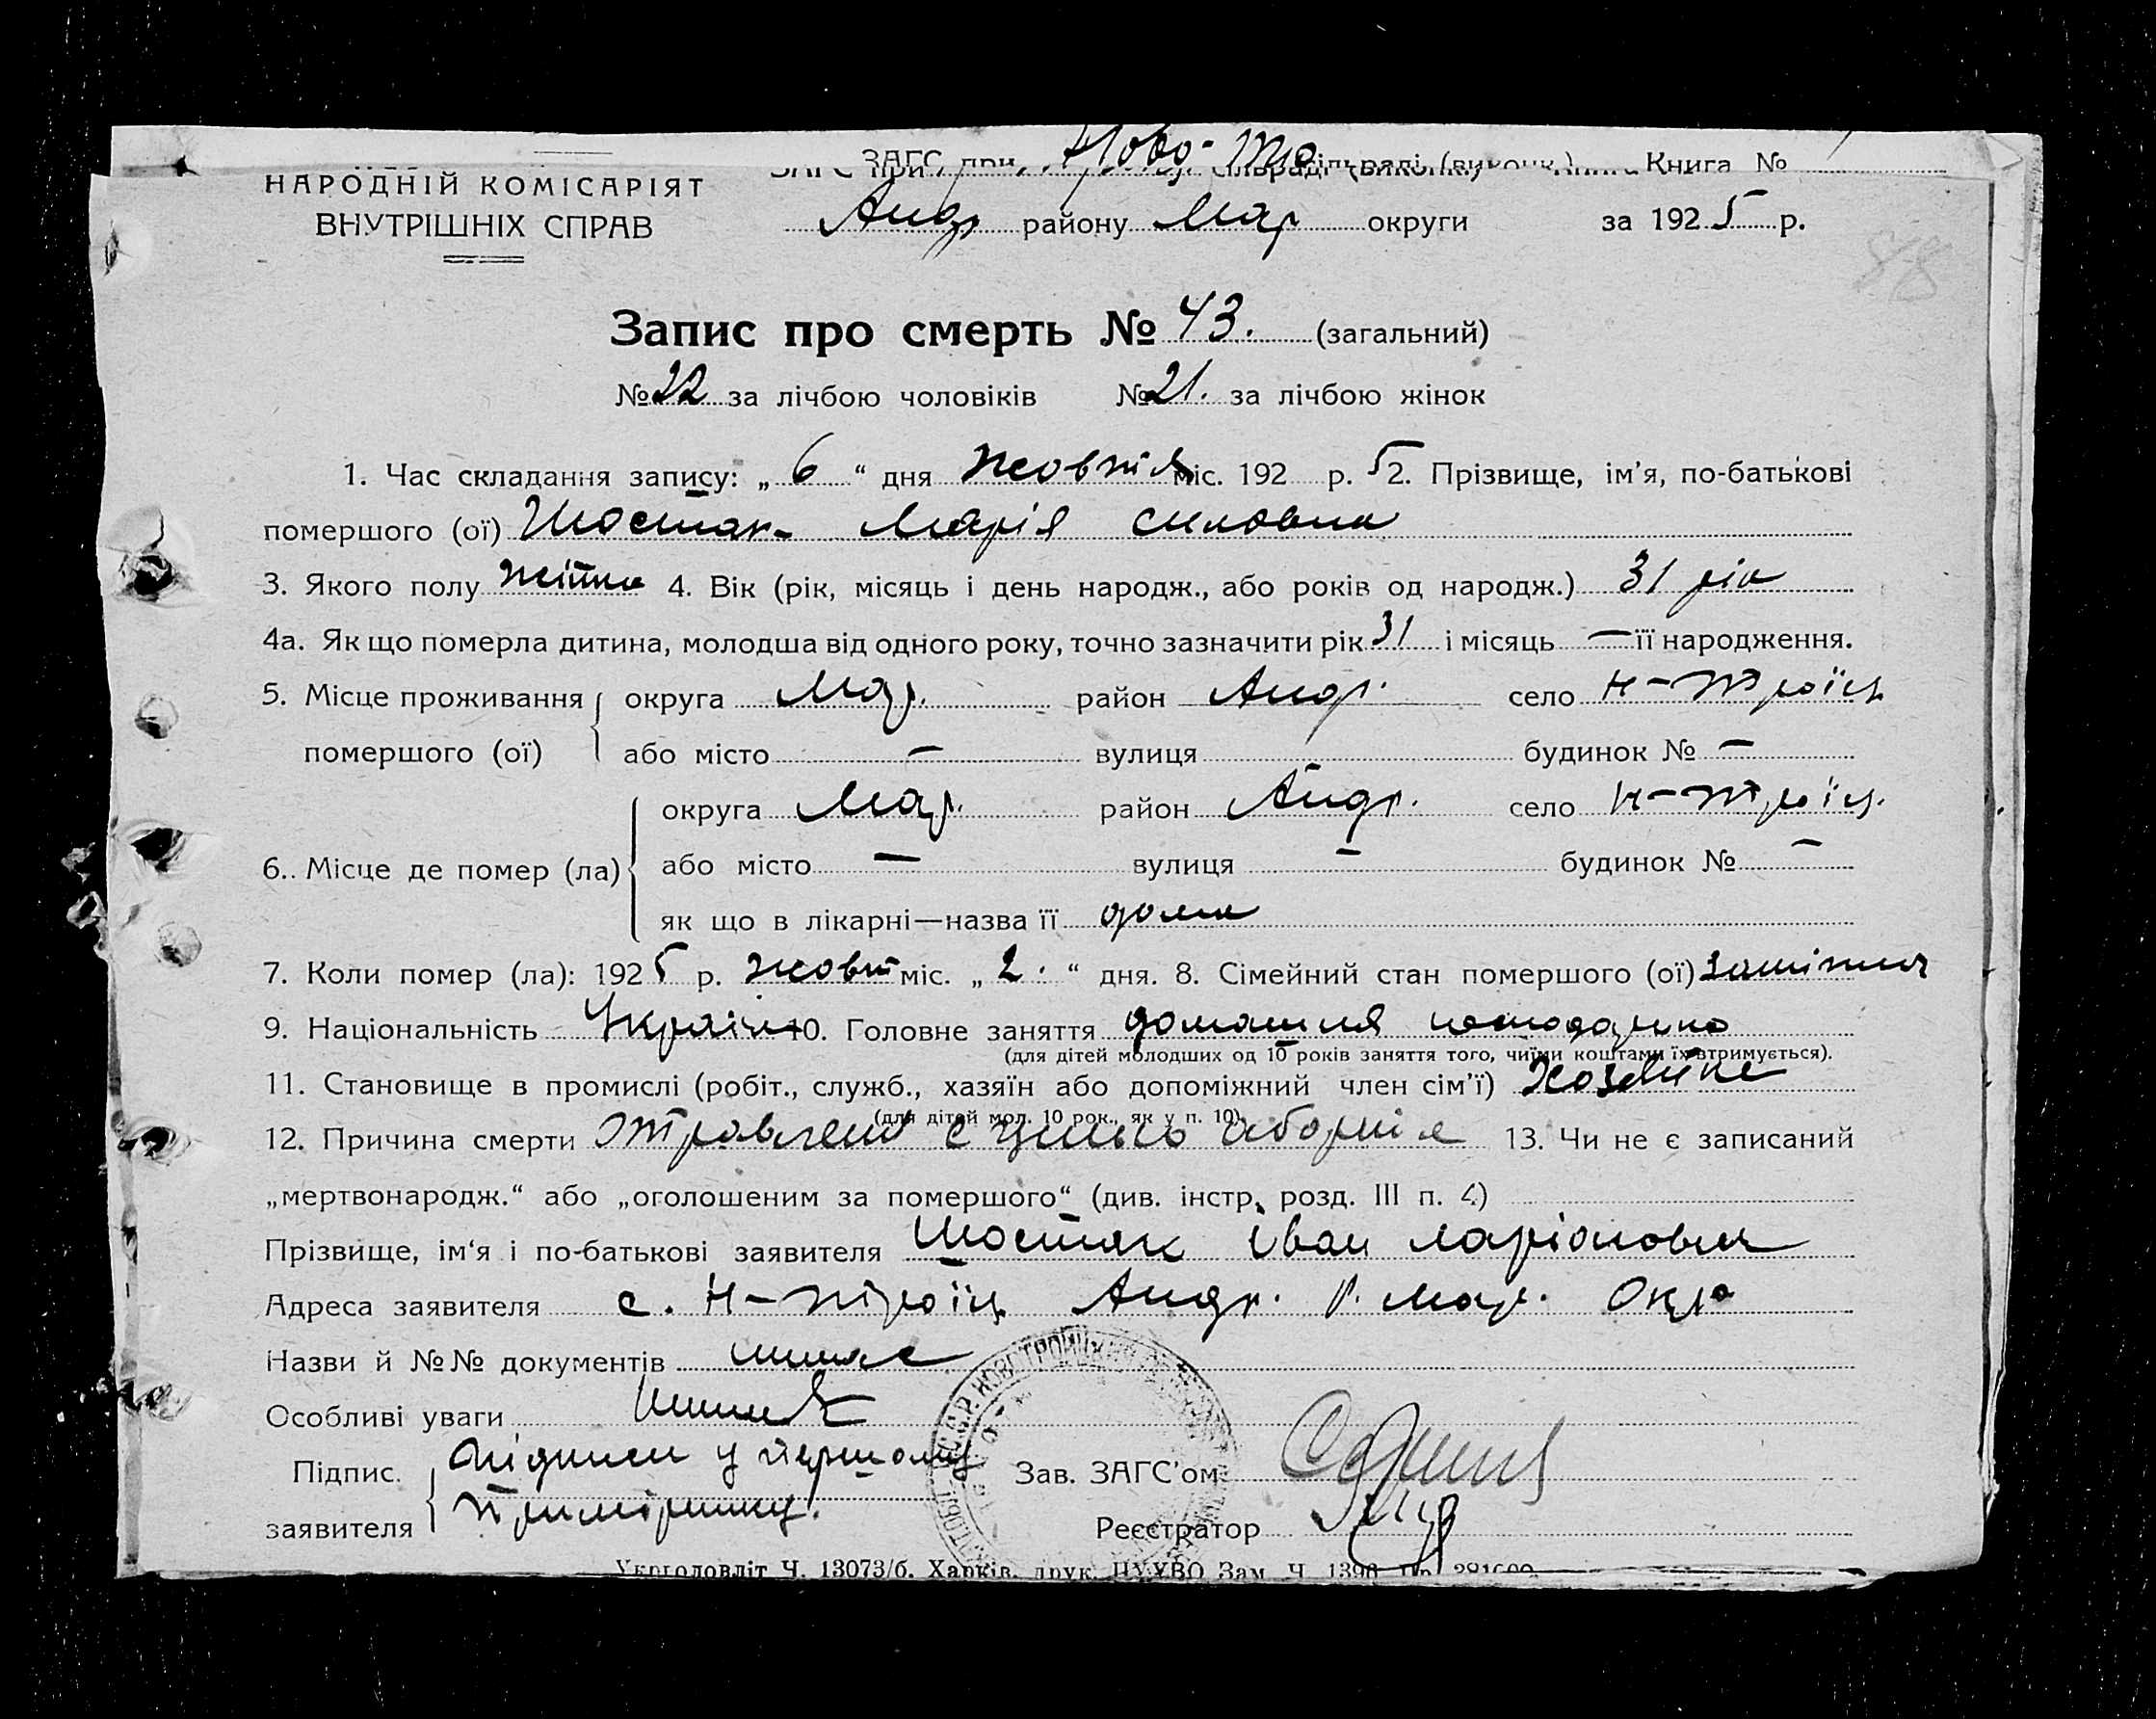 ЗАГС при Ново-Тро сільраді (виконк.) Книга №
НАРОДНІЙ КОМІСАРІЯТ
ВНУТРІШНІХ СПРАВ
Андр району Мар округи за 1925 р.
88
Запис про смерть № 43. (загальний)
№ 22 за лічбою чоловіків № 21. за лічбою жінок
1. Час складання запису: „ 6 “ дня жовтня міс. 192 р. 5 2. Прізвище, ім’я, по-батькові
помершого (ої) Шостак Марія
3. Якого полу 4. Вік (рік, місяць і день народж., або років од народж.) 31 рік
4а. Як що померла дитина, молодша від одного року, точно зазначити рік 31 і місяць — її народження.
5. Місце проживання округа Мар. район Андр. село Н-Троїц
помершого (ої) або місто — вулиця будинок № —
округа Мар. район Андр. село Н-Троїц.
6.. Місце де помер (ла) або місто — вулиця — будинок № —
як що в лікарні—назва її дома
7. Коли помер (ла): 1925 р. жовт міс. „ 2. “ дня. 8. Сімейний стан помершого (ої)
9. Національність Україн 10. Головне заняття домашня
(для дітей молодших од 10 років заняття того, чиїми коштами їх втримується).
11. Становище в промислі (робіт., служб., хазяїн або допоміжний член сім’ї) хозяйка
(для дітей мол. 10 рок., як у п. 10)
12. Причина смерти с целью 13. Чи не є записаний
„мертвонародж.“ або „оголошеним за помершого“ (див. інстр. розд. III п. 4)
Прізвище, ім‘я і по-батькові заявителя Шостак Іван Ларіонович
Адреса заявителя с. Н-Троїц Андр. р. Мар. Окр
Назви й №№ документів немає
Особливі уваги
Підпис. підписи у першому
заявителя примірнику.
Зав. ЗАГС’ом
Реєстратор
Укрголовліт Ч. 13073/б. Харків, друк. ЦУУВО Зам. Ч. 1396